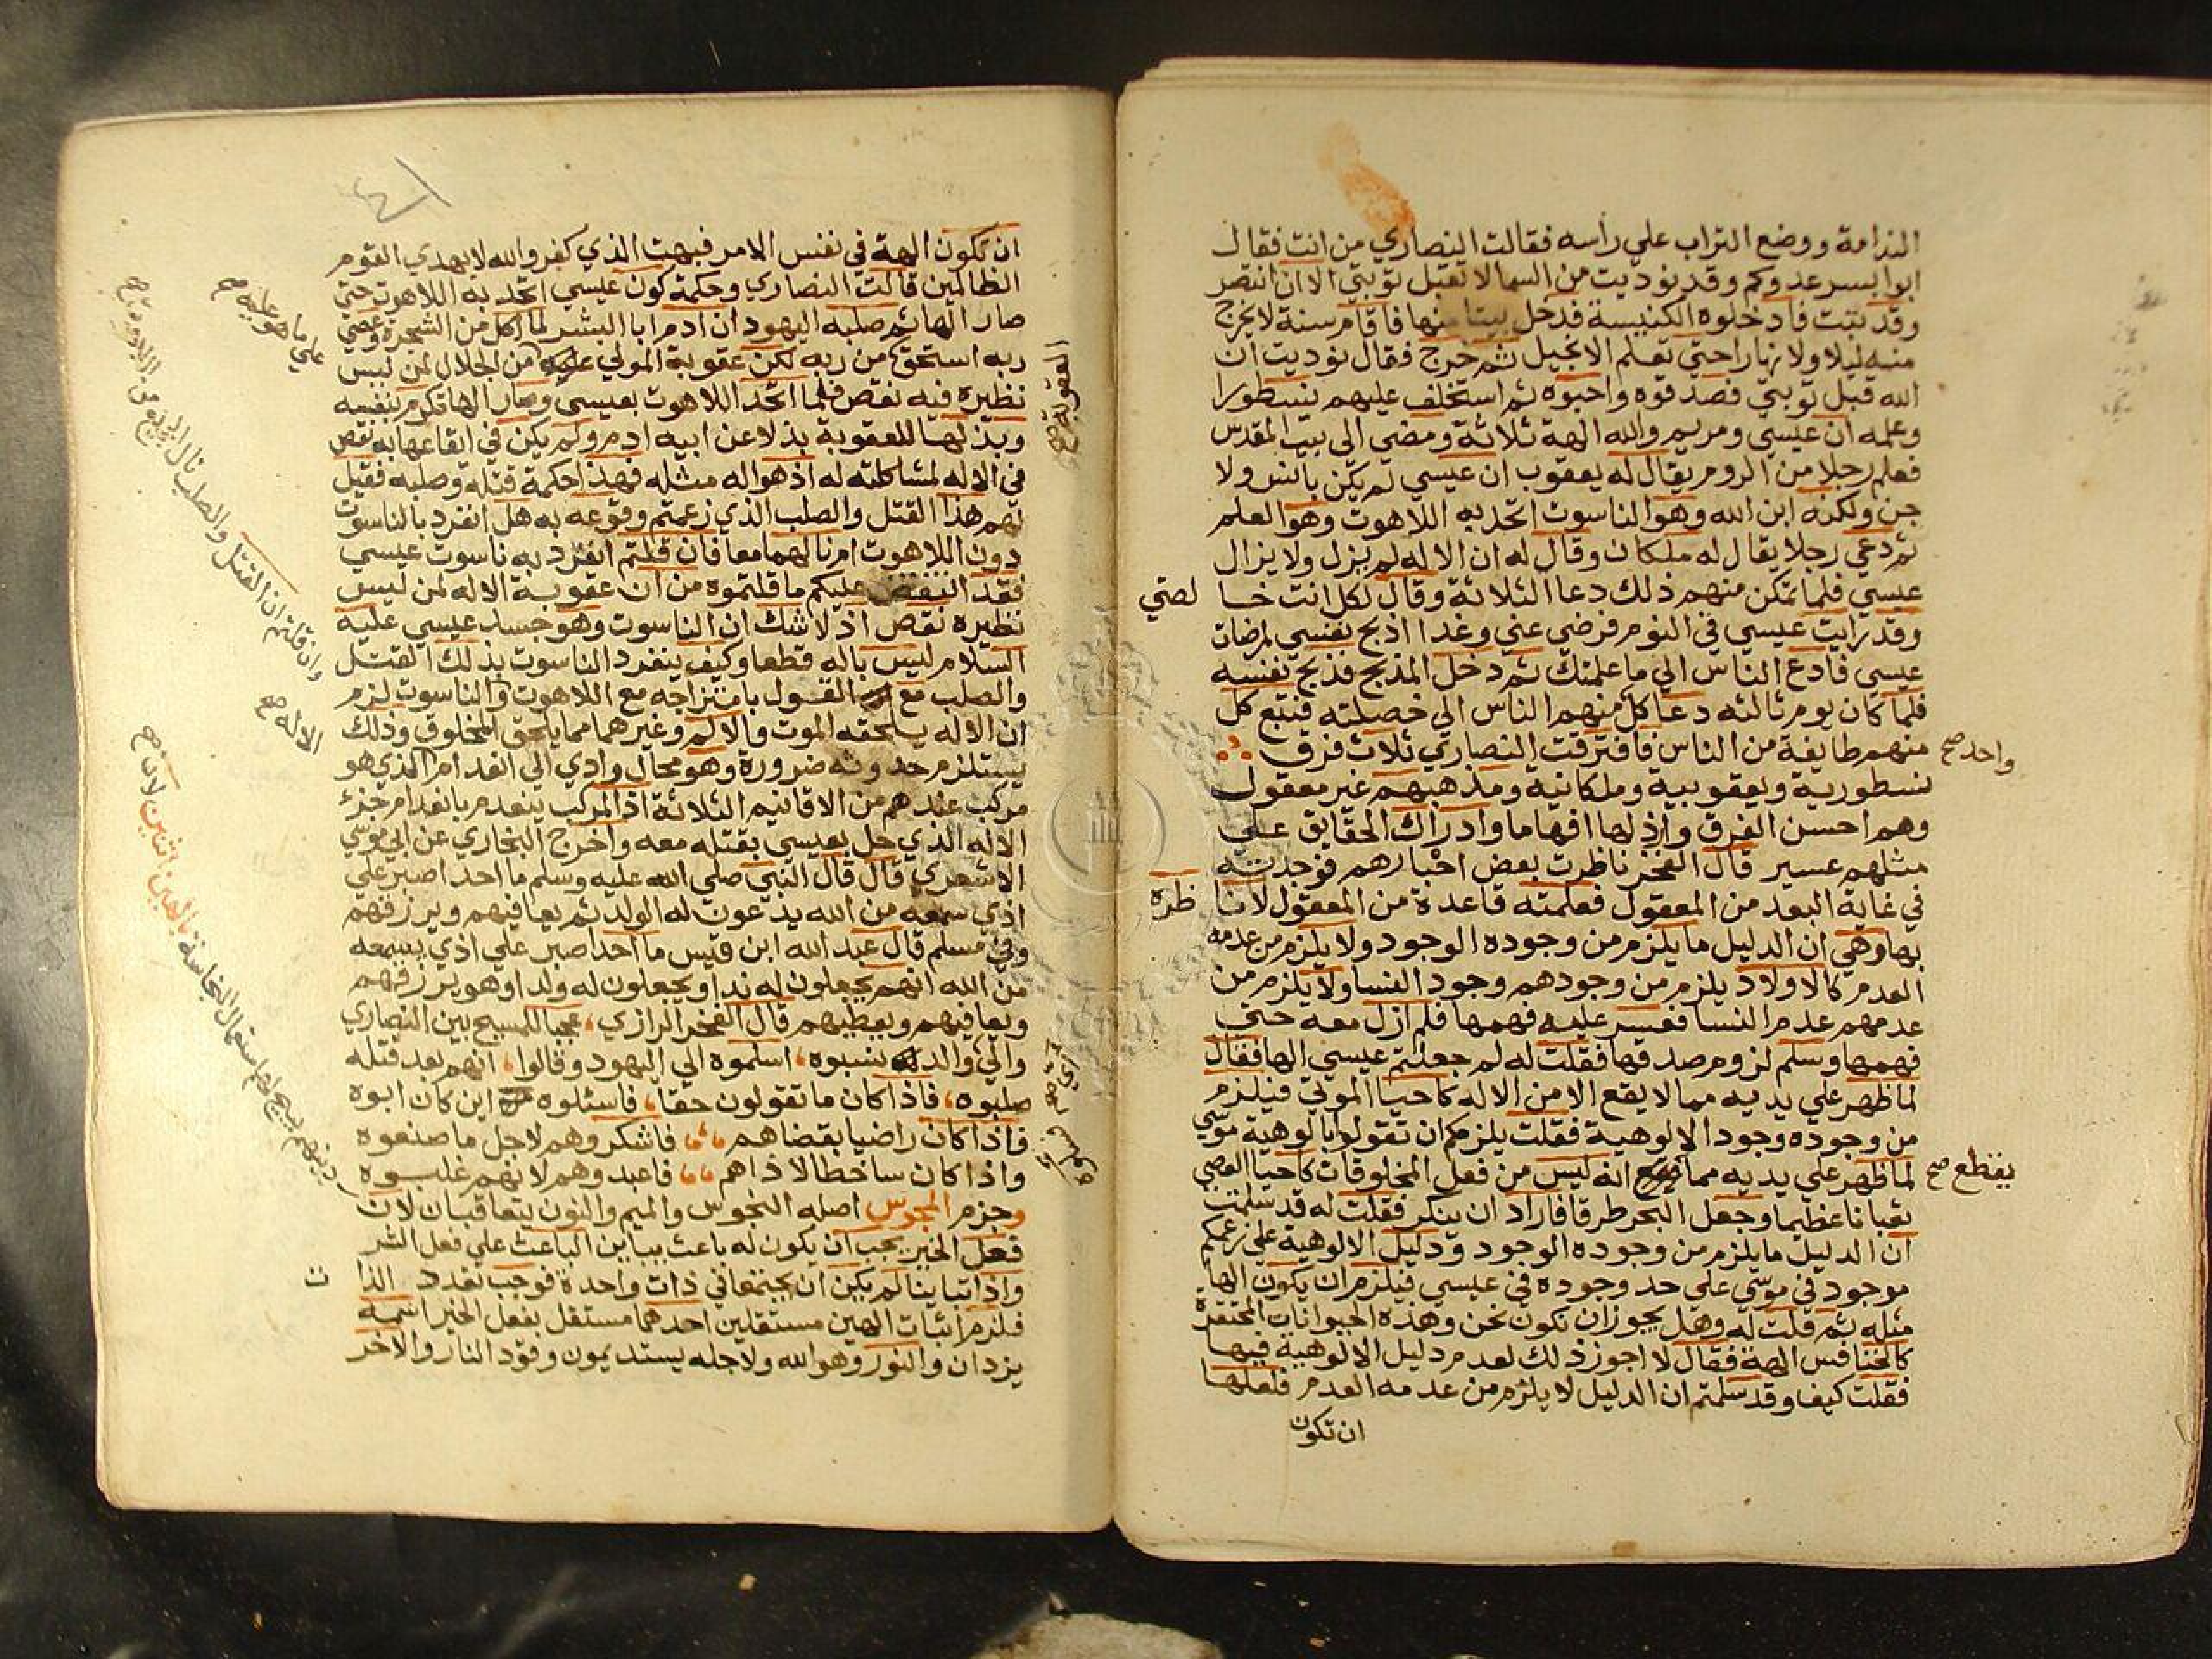 الندامة ووضع التراب علي رأسه فقالت النصاري من انت فقال
ابوا يسر عدوكم وقد نوديت من السما لا تقبل توبتي الا ان انتصر
وقد تبت فادخلوه الكنيسة فدخل بيتا منها فاقام سنة لا يخرج
منه ليلا ولا نهارا حتي تعلم الانجيل ثم خرج فقال نوديت ان
الله قبل توبتي فصدقوه واحبوه ثم استخلف عليهم نسطورا
وعلمه ان عيسي ومريم والله الهة ثلاثة ومضي الي بيت المقدس
فعلم رجلا من الروم يقال له يعقوب ان عيسي لم يكن بانس ولا
جن ولكنه ابن الله وهو الناسوت اتحد به اللاهوت وهو العلم
ثم دعي رجلا يقال له ملكان وقال له ان الاله لم يزل ولا يزال
عيسي فلما تمكن منهم ذلك دعا الثلاثة وقال لكل انت خا لصتي
وقد رايت عيسي في النوم فرضي عني وغدا اذبح نفسي لمرضات
عيسي فادع الناس الي ما علمتك ثم دخل المذبح فذبح نفسه
فلما كان يوم ثالثه دعا كل منهم الناس الي خصلته فتبع كل
منهم طايفة من الناس فافترقت النصاري ثلاث فرق
واحد صح
نسطورية ويعقوبية وملكانية ومذهبهم غير معقول
وهم احسن الفرق وارذلها افهاما وادراك الحقايق علي
مثلهم عسير قال الفخر ناظرت بعض احبارهم فوجدته
في غاية البعد من المعقول فعلمته قاعدة من المعقول لانا ظره
بها وهي ان الدليل ما يلزم من وجوده الوجود ولا يلزم من عدمه
العدم كالاولاد يلزم من وجودهم وجود النسا ولا يلزم من
عدمهم عدم النسا فعسر عليه فهمها فلم ازل معه حتي
فهمها وسلم لزوم صدقها فقلت له لم جعلتم عيسي الها فقال
لما ظهر علي يديه مما لا يقع الا من الاله كاحيا الموتي فيلزم
من وجوده وجود الالوهية فقلت يلزمكم ان تقولوا بالوهية موسي
لما ظهر علي يديه مما انه ليس من فعل المخلوقات كاحيا العصي
يقطع صح
ثعبانا عظيما وجعل البحر طرقا فاراد ان ينكر فقلت له قد سلمت
ان الدليل ما يلزم من وجوده الوجود ودليل الالوهية علي زعمكم
موجود في موسي علي حد وجوده في عيسي فيلزم ان يكون الها
مثله ثم قلت له وهل يجوز ان تكون نحن وهذه الحيوانات المحتقرة
كالخنافس الهة فقال لا اجوز ذلك لعدم دليل الالوهية فيها
فقلت كيف وقد سلمتم ان الدليل لا يلزم من عدمه العدم فلعلها
ان تكون
ان تكون الهة في نفس الامر فبهت الذي كفر والله لا يهدي القوم
الظالمين قالت النصاري وحكمة كون عيسي اتحد به اللاهوت حتي
صار الها ثم صلبه اليهود ان ادم ابا البشر لما اكل من الشجرة وعصي
ربه استحق من ربه لكن عقوبة المولي عليه من الجلال لمن ليس
العقوبة صح
علي ما هو عليه صح
نظيره فيه نقص فلما اتحد اللاهوت بعيسي وصار الها تكرم بنفسه
وبذلها للعقوبة بذلا عن ابيه ادم ولم يكن في ايقاعها به نقص
في الاله لمشاكلته له اذ هو اله مثله فهذا حكمة قتله وصلبه فقيل
لهم هذا القتل والصلب الذي زعمتم وقوعه به هل انفرد بالناسوت
دون اللاهوت ام نالهما معا فان قلتم انفرد به ناسوت عيسي
فقد انتقض عليكم ما قلتموه من ان عقوبة الاله لمن ليس
نظيره نقص اذ لا شك ان الناسوت وهو جسد عيسي عليه
السلام ليس باله قطعا وكيف ينفرد الناسوت بذلك القتل
والصلب مع القول بامتزاجه مع اللاهوت والناسوت لزم
وان قلتم ان القتل والصلب نال
ان الاله يلحقه الموت والالم وغيرهما مما يلحق المخلوق وذلك
الاله صح
يستلزم حدوثه ضرورة وهو محال وادي الي انعدام الذي هو
مركب عندهم من الاقانيم الثلاثة اذ المركب ينعدم بانعدام جزء
الاله الذي حل بعيسي بقتله معه واخرج البخاري عن ابي موسي
الاشعري قال قال النبي صلي الله عليه وسلم ما احد اصبر علي
اذي سمعه من الله يدعون له الولد ثم يعافيهم ويرزقهم
وفي مسلم قال عبد الله ابن قيس ما احد اصبر علي اذي يسمعه
من الله انهم يجعلون له ندا ويجعلون له ولدا وهو يرزقهم
ويعافيهم ويعطيهم قال الفخر الرازي، عجبا للمسيح بين النصاري
والي والد نسبوه، اسلموه الي اليهود وقالوا، انهم بعد قتله
صلبوه، فاذا كان ما تقولون حقا، فاسئلوه اين كان ابوه
فاذا كان راضيا بقضاهم فاشكروهم لاجل ما صنعوه
واذا كان ساخطا لاذاهم فاعبدوهم لانهم غلبوه
وجزم المجوس اصله النجوس والميم والنون يتعاقبان لان
دينهم يبيح لهم استعمال النجاسة بالهين اثنين لان صح
فعل الخير يجب ان يكون له باعث يباين الباعث علي فعل الشر
واذا تباينا لم يكن ان يجتمعا في ذات واحدة فوجب تعدد الذا ت
فلزم اثبات الهين مستقلين احدهما مستقل بفعل الخير اسمه
يزدان والنور وهو الله ولاجله يستديمون وقود النار والاخر